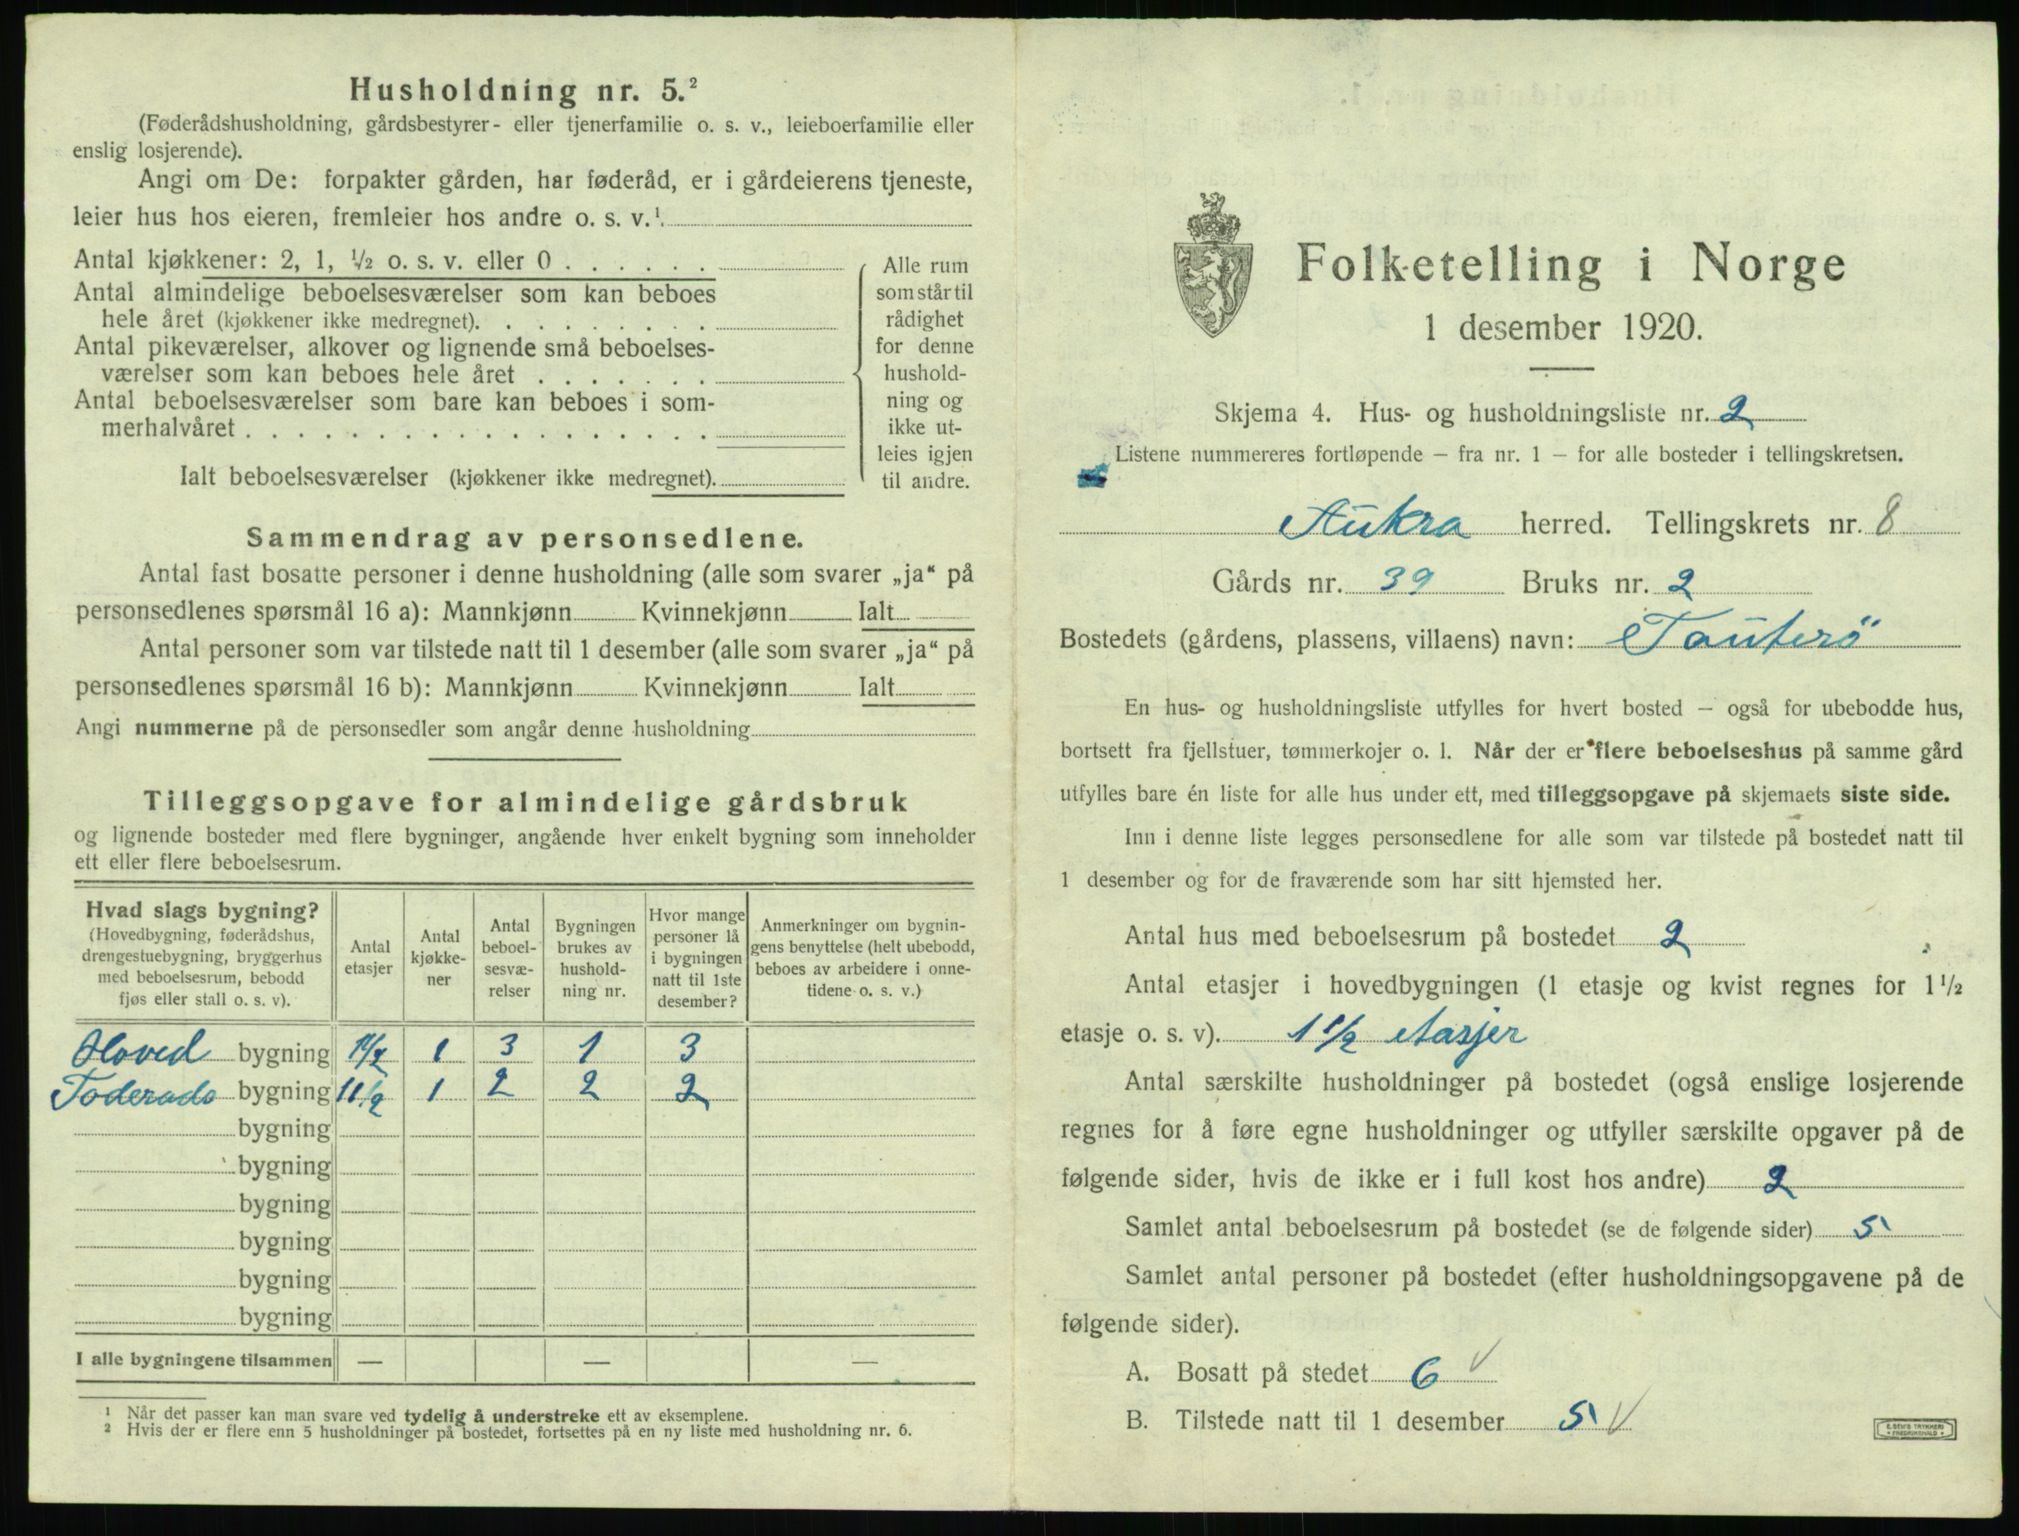 Husholdning nr. 5.²
(Føderådshusholdning, gårdsbestyrer- eller tjenerfamilie o. s. v., leieboerfamilie eller
enslig losjerende).
Angi om De: forpakter gården, har føderåd, er i gårdeierens tjeneste,
leier hus hos eieren, fremleier hos andre o. s. v.¹.
Antal kjøkkener: 2, 1, ½ o. s. v. eller 0 . . . . . .
Antal almindelige beboelsesværelser som kan beboes
hele året (kjøkkener ikke medregnet). . . . . . . . .
Antal pikeværelser, alkover og lignende små beboelses-
værelser som kan beboes hele året . . . . . . .
Antal beboelsesværelser som bare kan beboes i som-
merhalvåret . . . . . . . . . . . . . . . . . .
Ialt beboelsesværelser (kjøkkener ikke medregnet).
Alle rum
som står til
rådighet
for denne
hushold-
ning og
ikke ut-
leies igjen
til andre.
Sammendrag av personsedlene.
Antal fast bosatte personer i denne husholdning (alle som svarer „ja“ på
personsedlenes spørsmål 16 a): Mannkjønn Kvinnekjønn Ialt
Antal personer som var tilstede natt til 1 desember (alle som svarer „ja“ på
personsedlenes spørsmål 16 b): Mannkjønn Kvinnekjønn Ialt
Angi nummerne på de personsedler som angår denne husholdning
Tilleggsopgave for almindelige gårdsbruk
og lignende bosteder med flere bygninger, angående hver enkelt bygning som inneholder
ett eller flere beboelsesrum.
Hvad slags bygning?
(Hovedbygning, føderådshus,
drengestuebygning, bryggerhus
med beboelsesrum, bebodd
fjøs eller stall o. s. v).
Antal
etasjer
Antal
kjøkke-
ner
Antal
beboel-
sesvæ-
relser
Bygningen
brukes av
hushold-
ning nr.
Hvor mange
personer lå
i bygningen
natt til 1ste
desember?
Anmerkninger om bygnin-
gens benyttelse (helt ubebodd,
beboes av arbeidere i onne-
tidene o. s. v.)
Hoved bygning 1½ 1 3 1 3
Föderads bygning 1 1/2 1 2 2 2
bygning
bygning
bygning
bygning
bygning
bygning
I alle bygningene tilsammen — — —
¹ Når det passer kan man svare ved tydelig å understreke ett av eksemplene.
² Hvis der er flere enn 5 husholdninger på bostedet, fortsettes på en ny liste med husholdning nr. 6.
Folketelling i Norge
1 desember 1920.
Skjema 4. Hus- og husholdningsliste nr. 2
Listene nummereres fortløpende – fra nr. 1 – for alle bosteder i tellingskretsen.
Aukra herred. Tellingskrets nr. 8
Gårds nr. 39 Bruks nr. 2
Bostedets (gårdens, plassens, villaens) navn: Tauterö
En hus- og husholdningsliste utfylles for hvert bosted – også for ubebodde hus,
bortsett fra fjellstuer, tømmerkojer o. l. Når der er flere beboelseshus på samme gård
utfylles bare én liste for alle hus under ett, med tilleggsopgave på skjemaets siste side.
Inn i denne liste legges personsedlene for alle som var tilstede på bostedet natt til
1 desember og for de fraværende som har sitt hjemsted her.
Antal hus med beboelsesrum på bostedet 2
Antal etasjer i hovedbygningen (1 etasje og kvist regnes for 1 1/2
etasje o. s. v). 1 1/2 etasjer
Antal særskilte husholdninger på bostedet (også enslige losjerende
regnes for å føre egne husholdninger og utfyller særskilte opgaver på de
følgende sider, hvis de ikke er i full kost hos andre) 2
Samlet antal beboelsesrum på bostedet (se de følgende sider) 5
Samlet antal personer på bostedet (efter husholdningsopgavene på de
følgende sider).
A. Bosatt på stedet 6 √
B. Tilstede natt til 1 desember 5 √
E. SEM'S TRYKKERI
• FREDRIKSHALD •